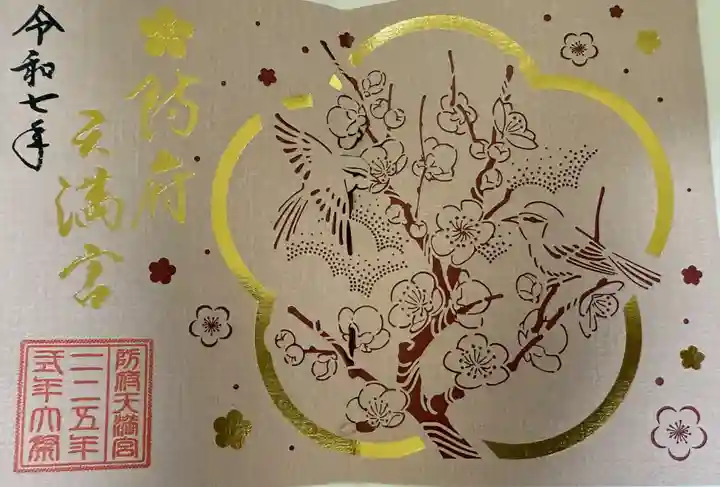 令和七年
防府
天満宮
防府天満宮
一一二五年
式年大祭